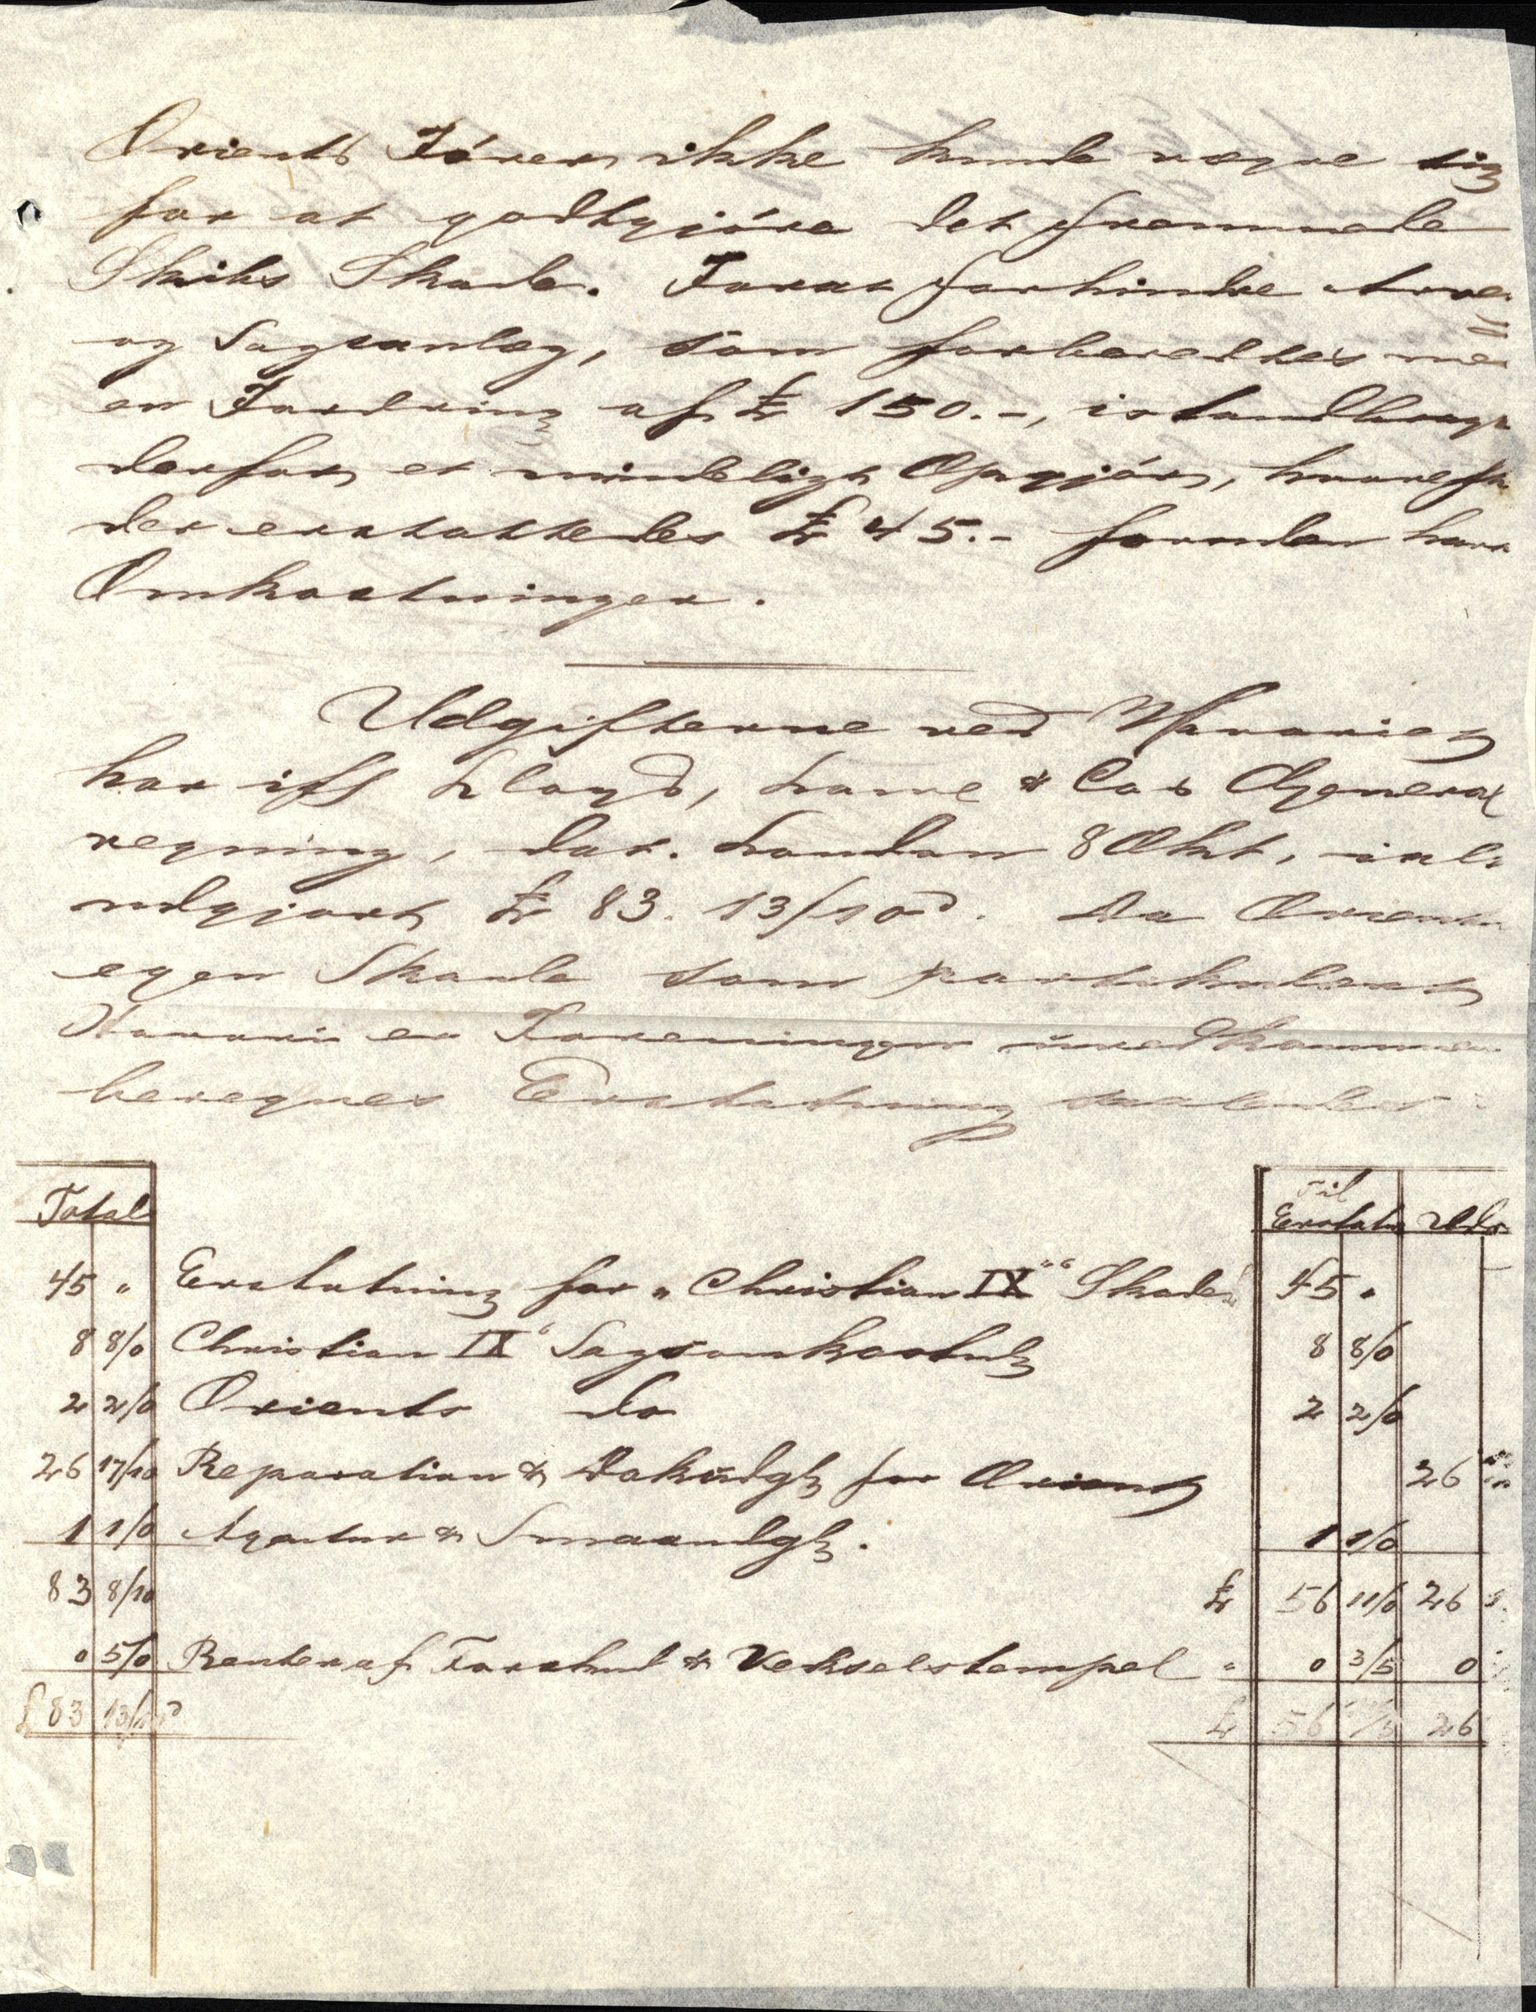 Orients Fører ikke kunde vægre sig
for at godtgjøre det fremmede
Skibs Skade. Forat forhindre Arre-
og Sagsanlæg, som forberedtes me
en Fordring af £ 150.-, istandbragt
derfor et mindeligt Opgjør, hvoreft
der erstattedes £ 45.- foruden hava
Omkostninger.
Udgifterne ved Havariet
har ifl Lloyd, Lowe & Co's General
regning, dat. London 8 Okt, ialt
udgjort £ 83. 13/10d. Da Orients
egen Skade som partikulært
Havari er Foreningen uvedkommen
beregnes Erstatning saaledes:
Total Til
Erstatn Udr
45 " Erstatning for "Christian IX" Skade 45 "
8 8/0 Christian IX's Sagsomkostng 8 8/0
2 2/0 Orients do 2 2/0
26 17/10 Reparation & Dokudgtr for Orient 26
1 1/0 Agentur & Smaaudgtr. 1 1/0
83 8/10 £ 56 11/0 26
0 5/0 Renter af Forskud & Vekselstempel " 0 3/5 0
£ 83 13/10d £ 56 26